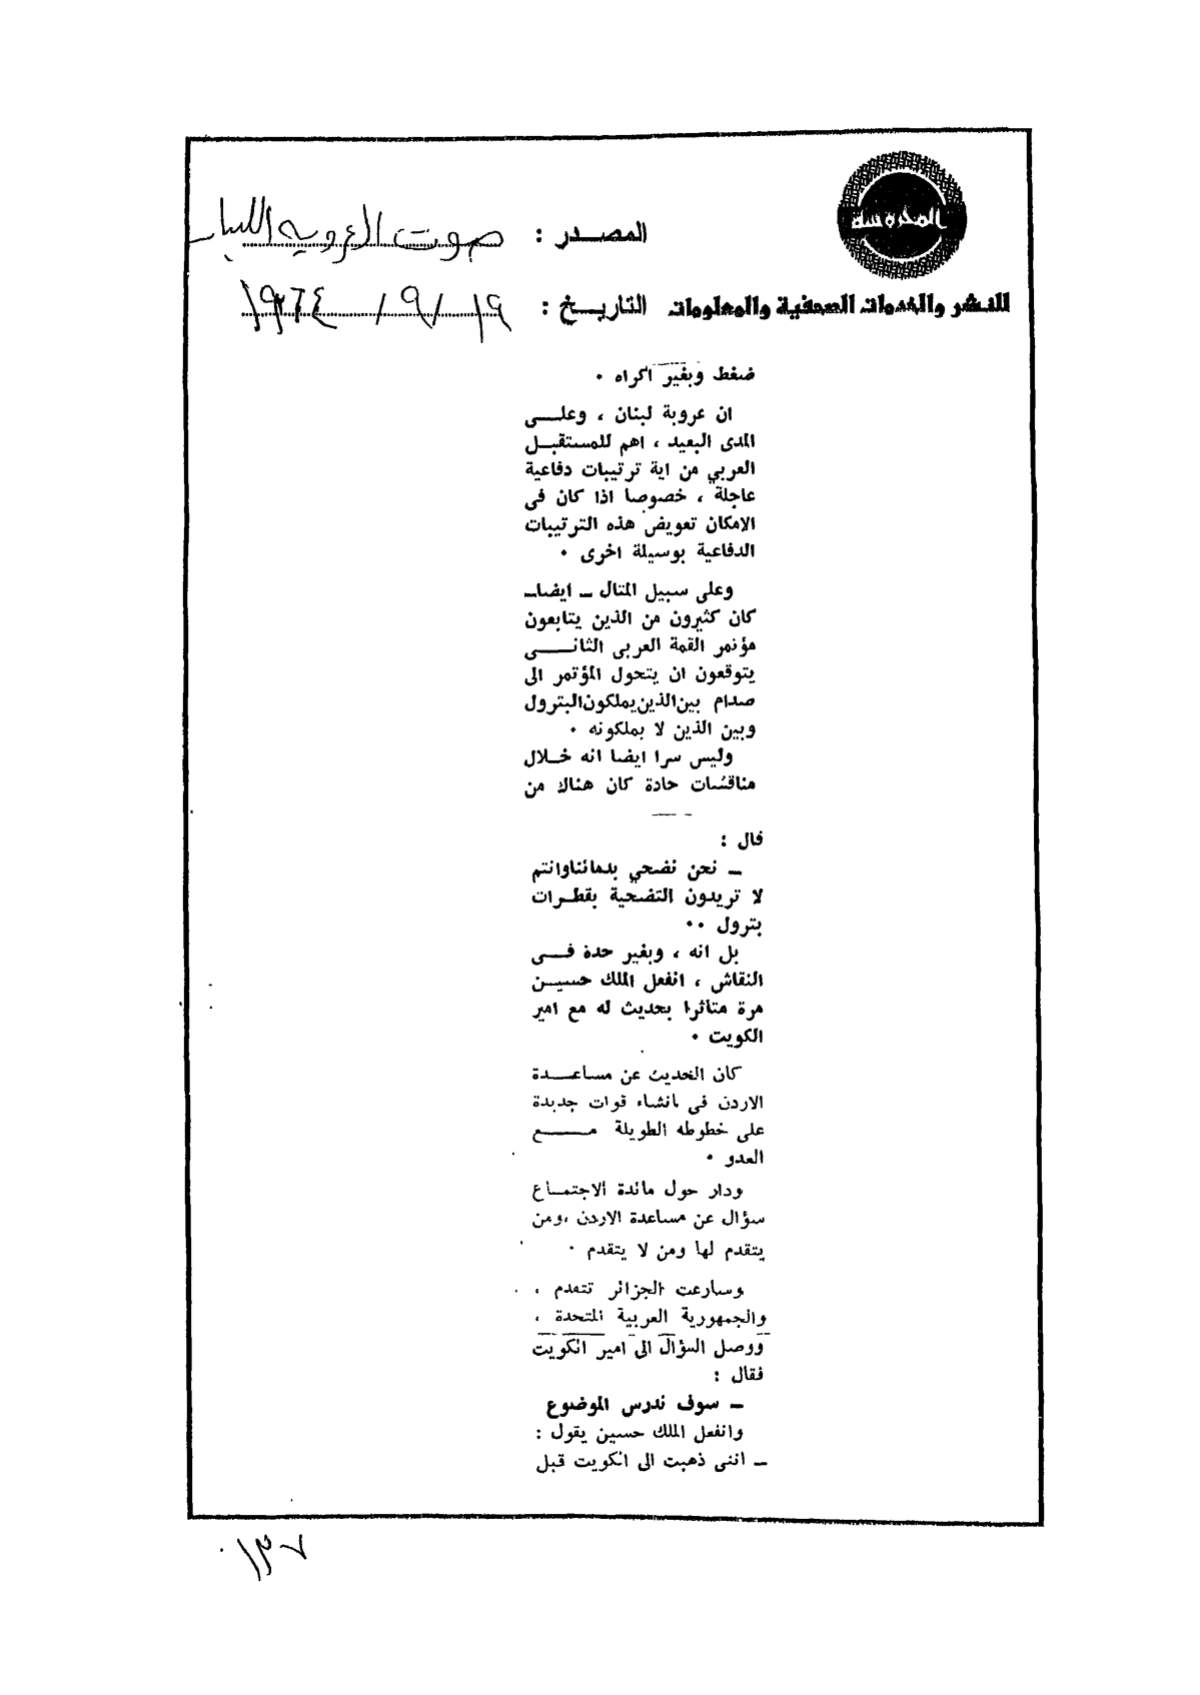 المحروسة
المصدر : صوت العروبه اللبنا
للنشر والخدمات الصحفية والمعلومات
التاريخ : ١٩ / ٩ / ١٩٦٤
ضغط وبغير اكراه .
ان عروبة لبنان ، وعلى
المدى البعيد ، اهم للمستقبل
العربي من اية ترتيبات دفاعية
عاجلة ، خصوصا اذا كان فى
الامكان تعويض هذه الترتيبات
الدفاعية بوسيلة اخرى .
وعلى سبيل المثال ــ ايضا ــ
كان كثيرون من الذين يتابعون
مؤتمر القمة العربى الثانى
يتوقعون ان يتحول المؤتمر الى
صدام بين الذين يملكون البترول
وبين الذين لا يملكونه .
وليس سرا ايضا انه خلال
مناقشات حادة كان هناك من
قال :
ــ نحن نضحي بدمائنا وانتم
لا تريدون التضحية بقطرات
بترول ..
بل انه ، وبغير حدة فى
النقاش ، انفعل الملك حسين
مرة متاثرا بحديث له مع امير
الكويت .
كان الحديث عن مساعدة
الاردن فى انشاء قوات جديدة
على خطوطه الطويلة مع
العدو .
ودار حول مائدة الاجتماع
سؤال عن مساعدة الاردن ،ومن
يتقدم لها ومن لا يتقدم .
وسارعت الجزائر تتقدم ،
والجمهورية العربية المتحدة ،
ووصل السؤال الى امير الكويت
فقال :
ــ سوف ندرس الموضوع
وانفعل الملك حسين يقول :
ــ اننى ذهبت الى الكويت قبل
١٣٧